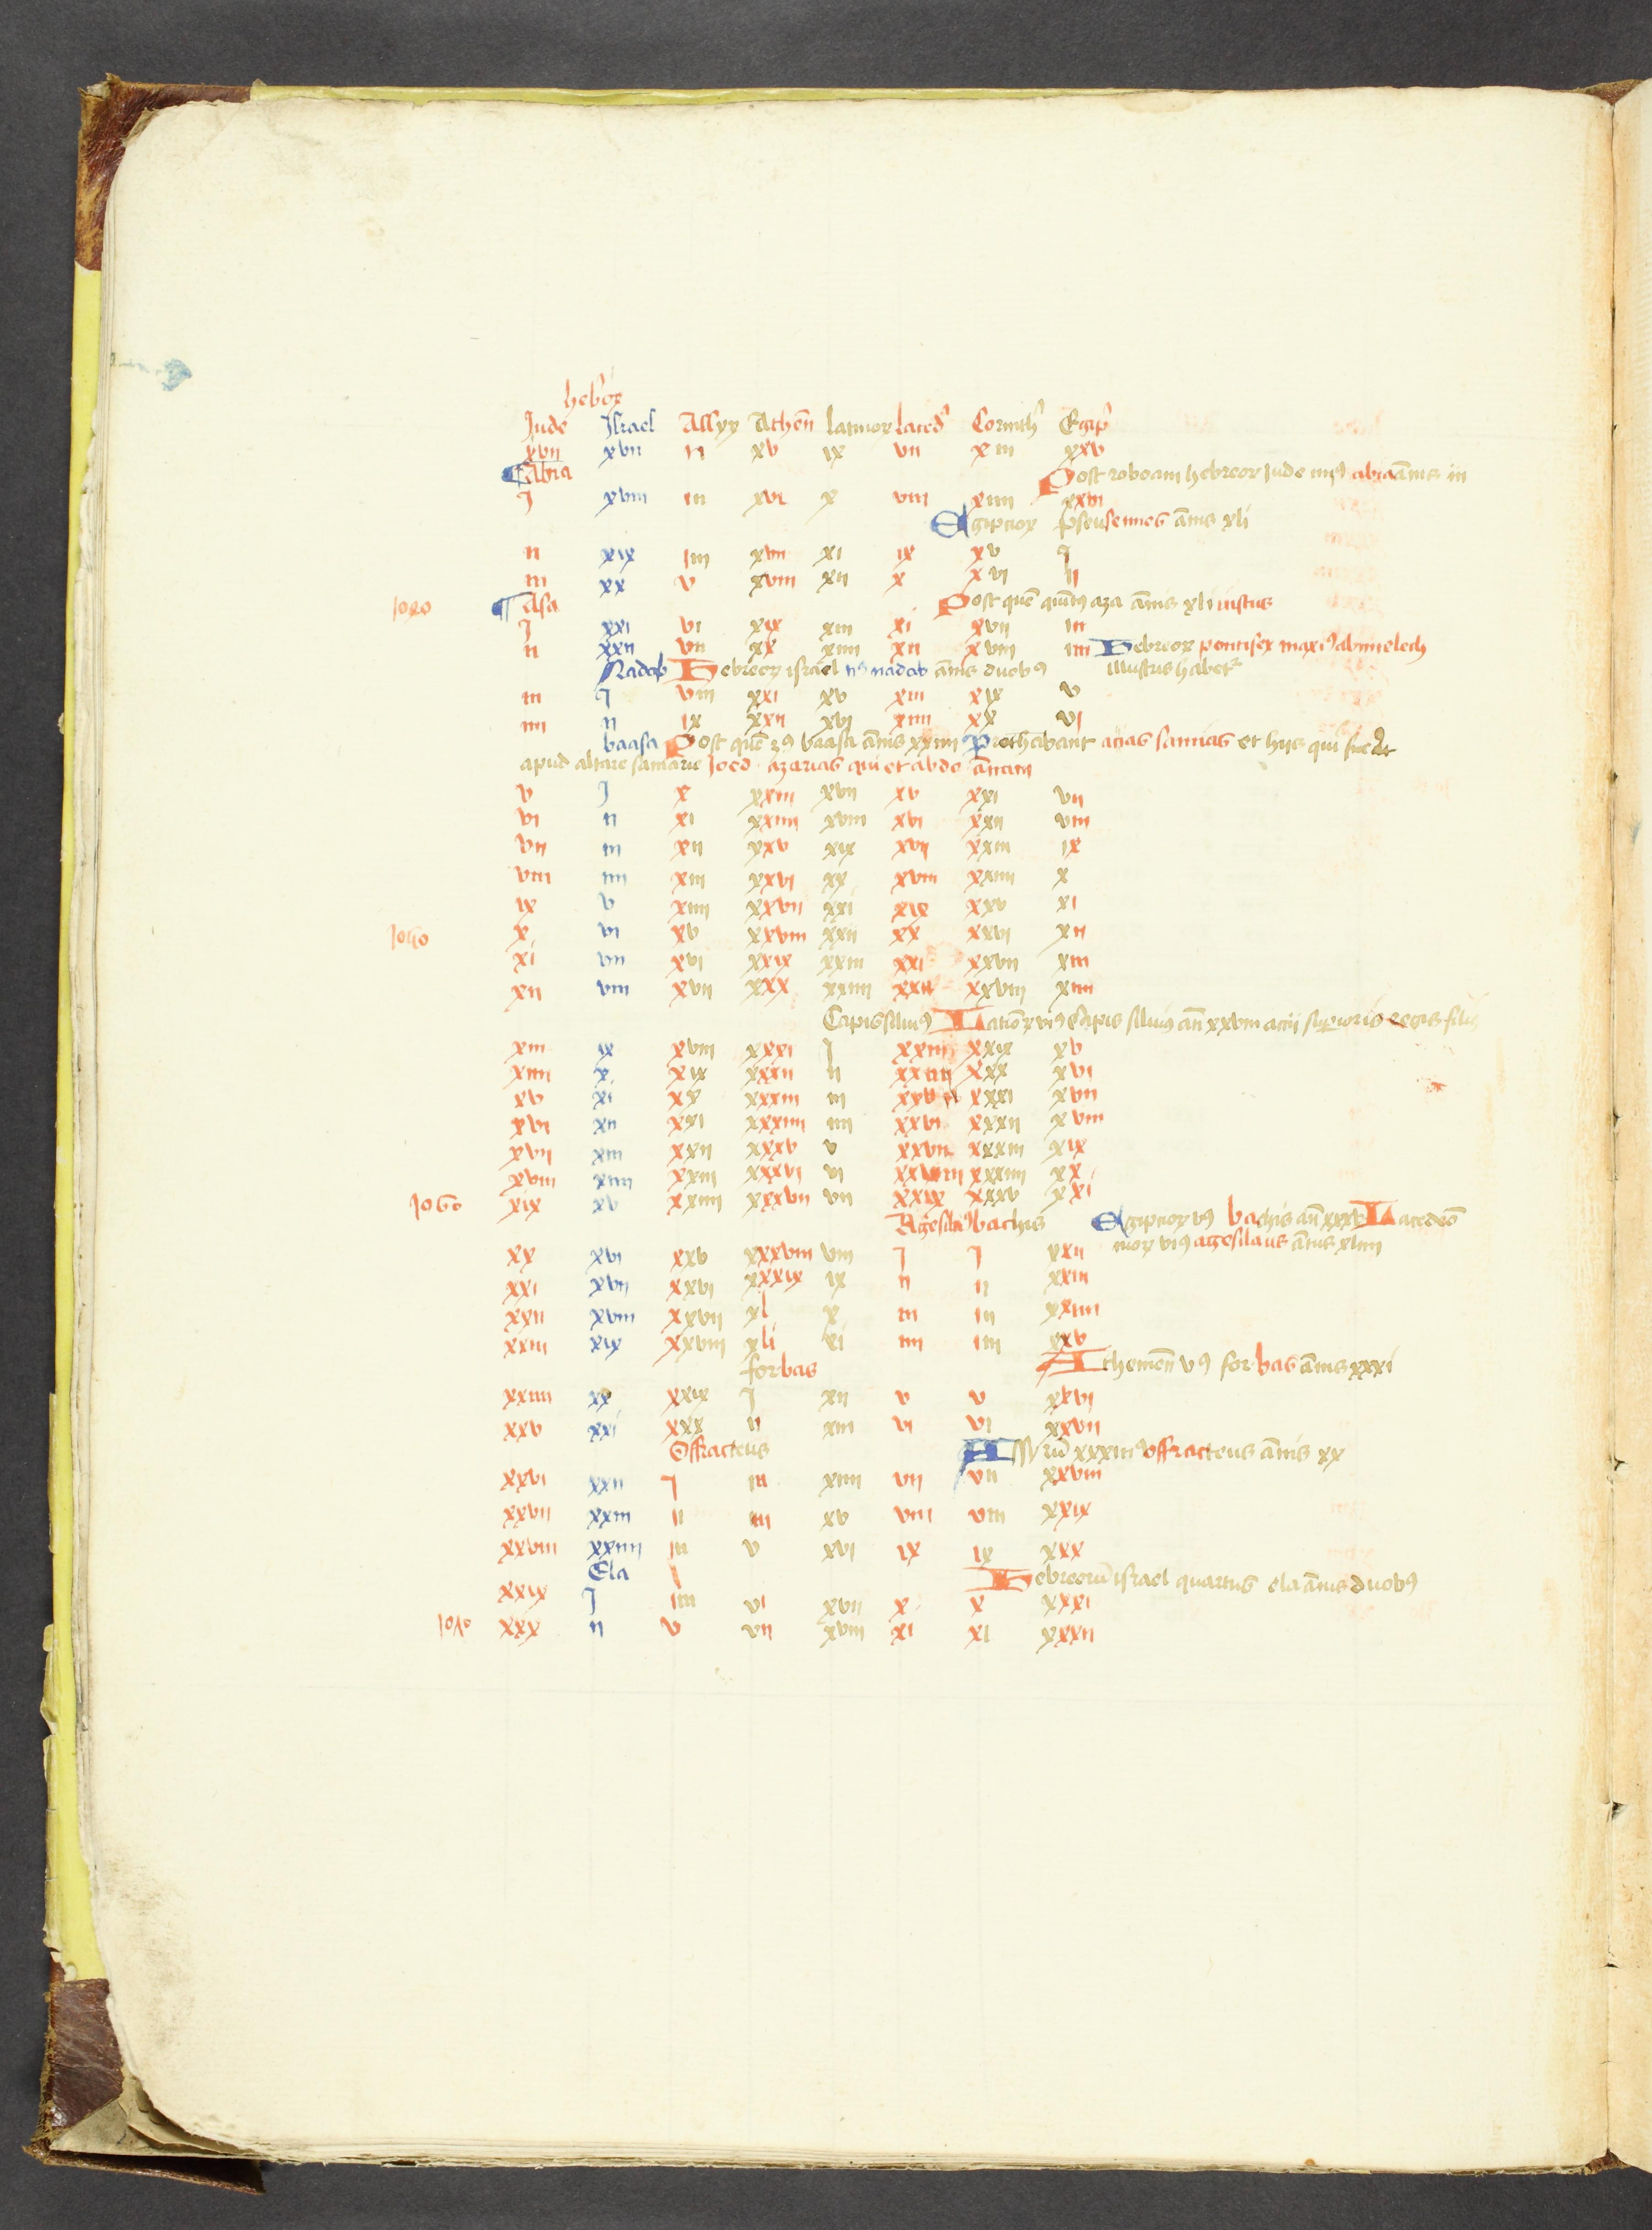 hebreoꝝ
Jude Israel Assyꝝ Athen̄ latinoꝝ laced' Corinth' Egip'
xvii xvii ii xv ix vii xiii xxv
Abia Post roboam hebreoꝝ Jude iiiꝰ abia ān̄is iii
J xviii iii xvi x viii xiiii xxvi
Egiptioꝝ pseusennes ān̄is xli
ii xix iiii xvii xi ix xv J
iii xx v xviii xii x xvi ii
Asa Post quē quītꝰ aza ān̄is xli iustus
J xxi vi xix xiii xi xvii iii
ii xxii vii xx xiiii xii xviii iiii Hebreoꝝ pontifex maxiꝰ abimelech
Nadab Hebreoꝝ israel iiꝰ nadab ān̄is duobꝰ illustris habet᷑
iii J viii xxi xv xiii xix v
iiii ii ix xxii xvi xiiii xx vi
baasa Post quē 3ꝰ baasa ān̄is xxiiii Prophetabant acias samias et hijs qui
apud altare samarie Joed azarias qui et abdo anani
v J x xxiii xvii xv xxi vii
vi ii xi xxiiii xviii xvi xxii viii
vii iii xii xxv xix xvii xxiii ix
viii iiii xiii xxvi xx xviii xxiiii x
ix v xiiii xxvii xxi xix xxv xi
x vi xv xxviii xxii xx xxvi xii
xi vii xvi xxix xxiii xxi xxvii xiii
xii viii xvii xxx xxiiii xxii xxviii xiiii
Capis siluiꝰ Latīoꝝ viꝰ Capis siluiꝰ an̄ xxviii acij suꝑioris regis filiꝰ
xiii ix xviii xxxi J xxiii xxix xv
xiiii x xix xxxii ii xxiiii xxx xvi
xv xi xx xxxiii iii xxv xxxi xvii
xvi xii xxi xxxiiii iiii xxvi xxxii xviii
xvii xiii xxii xxxv v xxvii xxxiii xix
xviii xiiii xxiii xxxvi vi xxviii xxxiiii xx
1060 xix xv xxiiii xxxvii vii xxix xxxv xxi
Agesilaꝰ bachis Egiptioꝝ vꝰ bachis an̄ xxxv Lacedeō
xx xvi xxv xxxviii viii J J xxii moꝝ viꝰ agesilaus ān̄is xliiii
xxi xvii xxvi xxxix ix ii ii xxiii
xxii xviii xxvii xl x iii iii xxiiii
xxiii xix xxviii xli xi iiii iiii xxv
forbas Athenien̄ vꝰ forbas ān̄is xxxi
xxiiii xx xxix J xii v v xxvi
xxv xxi xxx ii xiii vi vi xxvii
Offracteus Assyriū xxxiiiꝰ offracteus ān̄is xx
xxvi xxii J iii xiiii vii vii xxviii
xxvii xxiii ii iiii xv viii viii xxix
xxviii xxiiii iii v xvi ix ix xxx
Ela Hebreorū israel quartus ela ān̄is duobꝰ
xxix J iiii vi xvii x x xxxi
1070 xxx ii v vii xviii xi xi xxxii